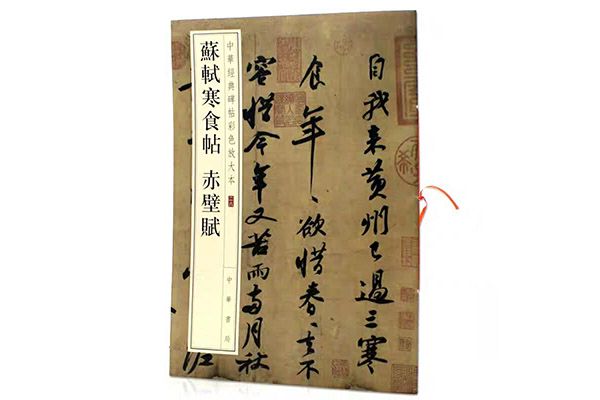 蘇軾寒食帖 赤壁賦
中華經典碑帖彩色放大本
中華書局
自我来黄州已過三寒
食年〻欲惜春〻去不
容惜今年又苦雨兩月秋